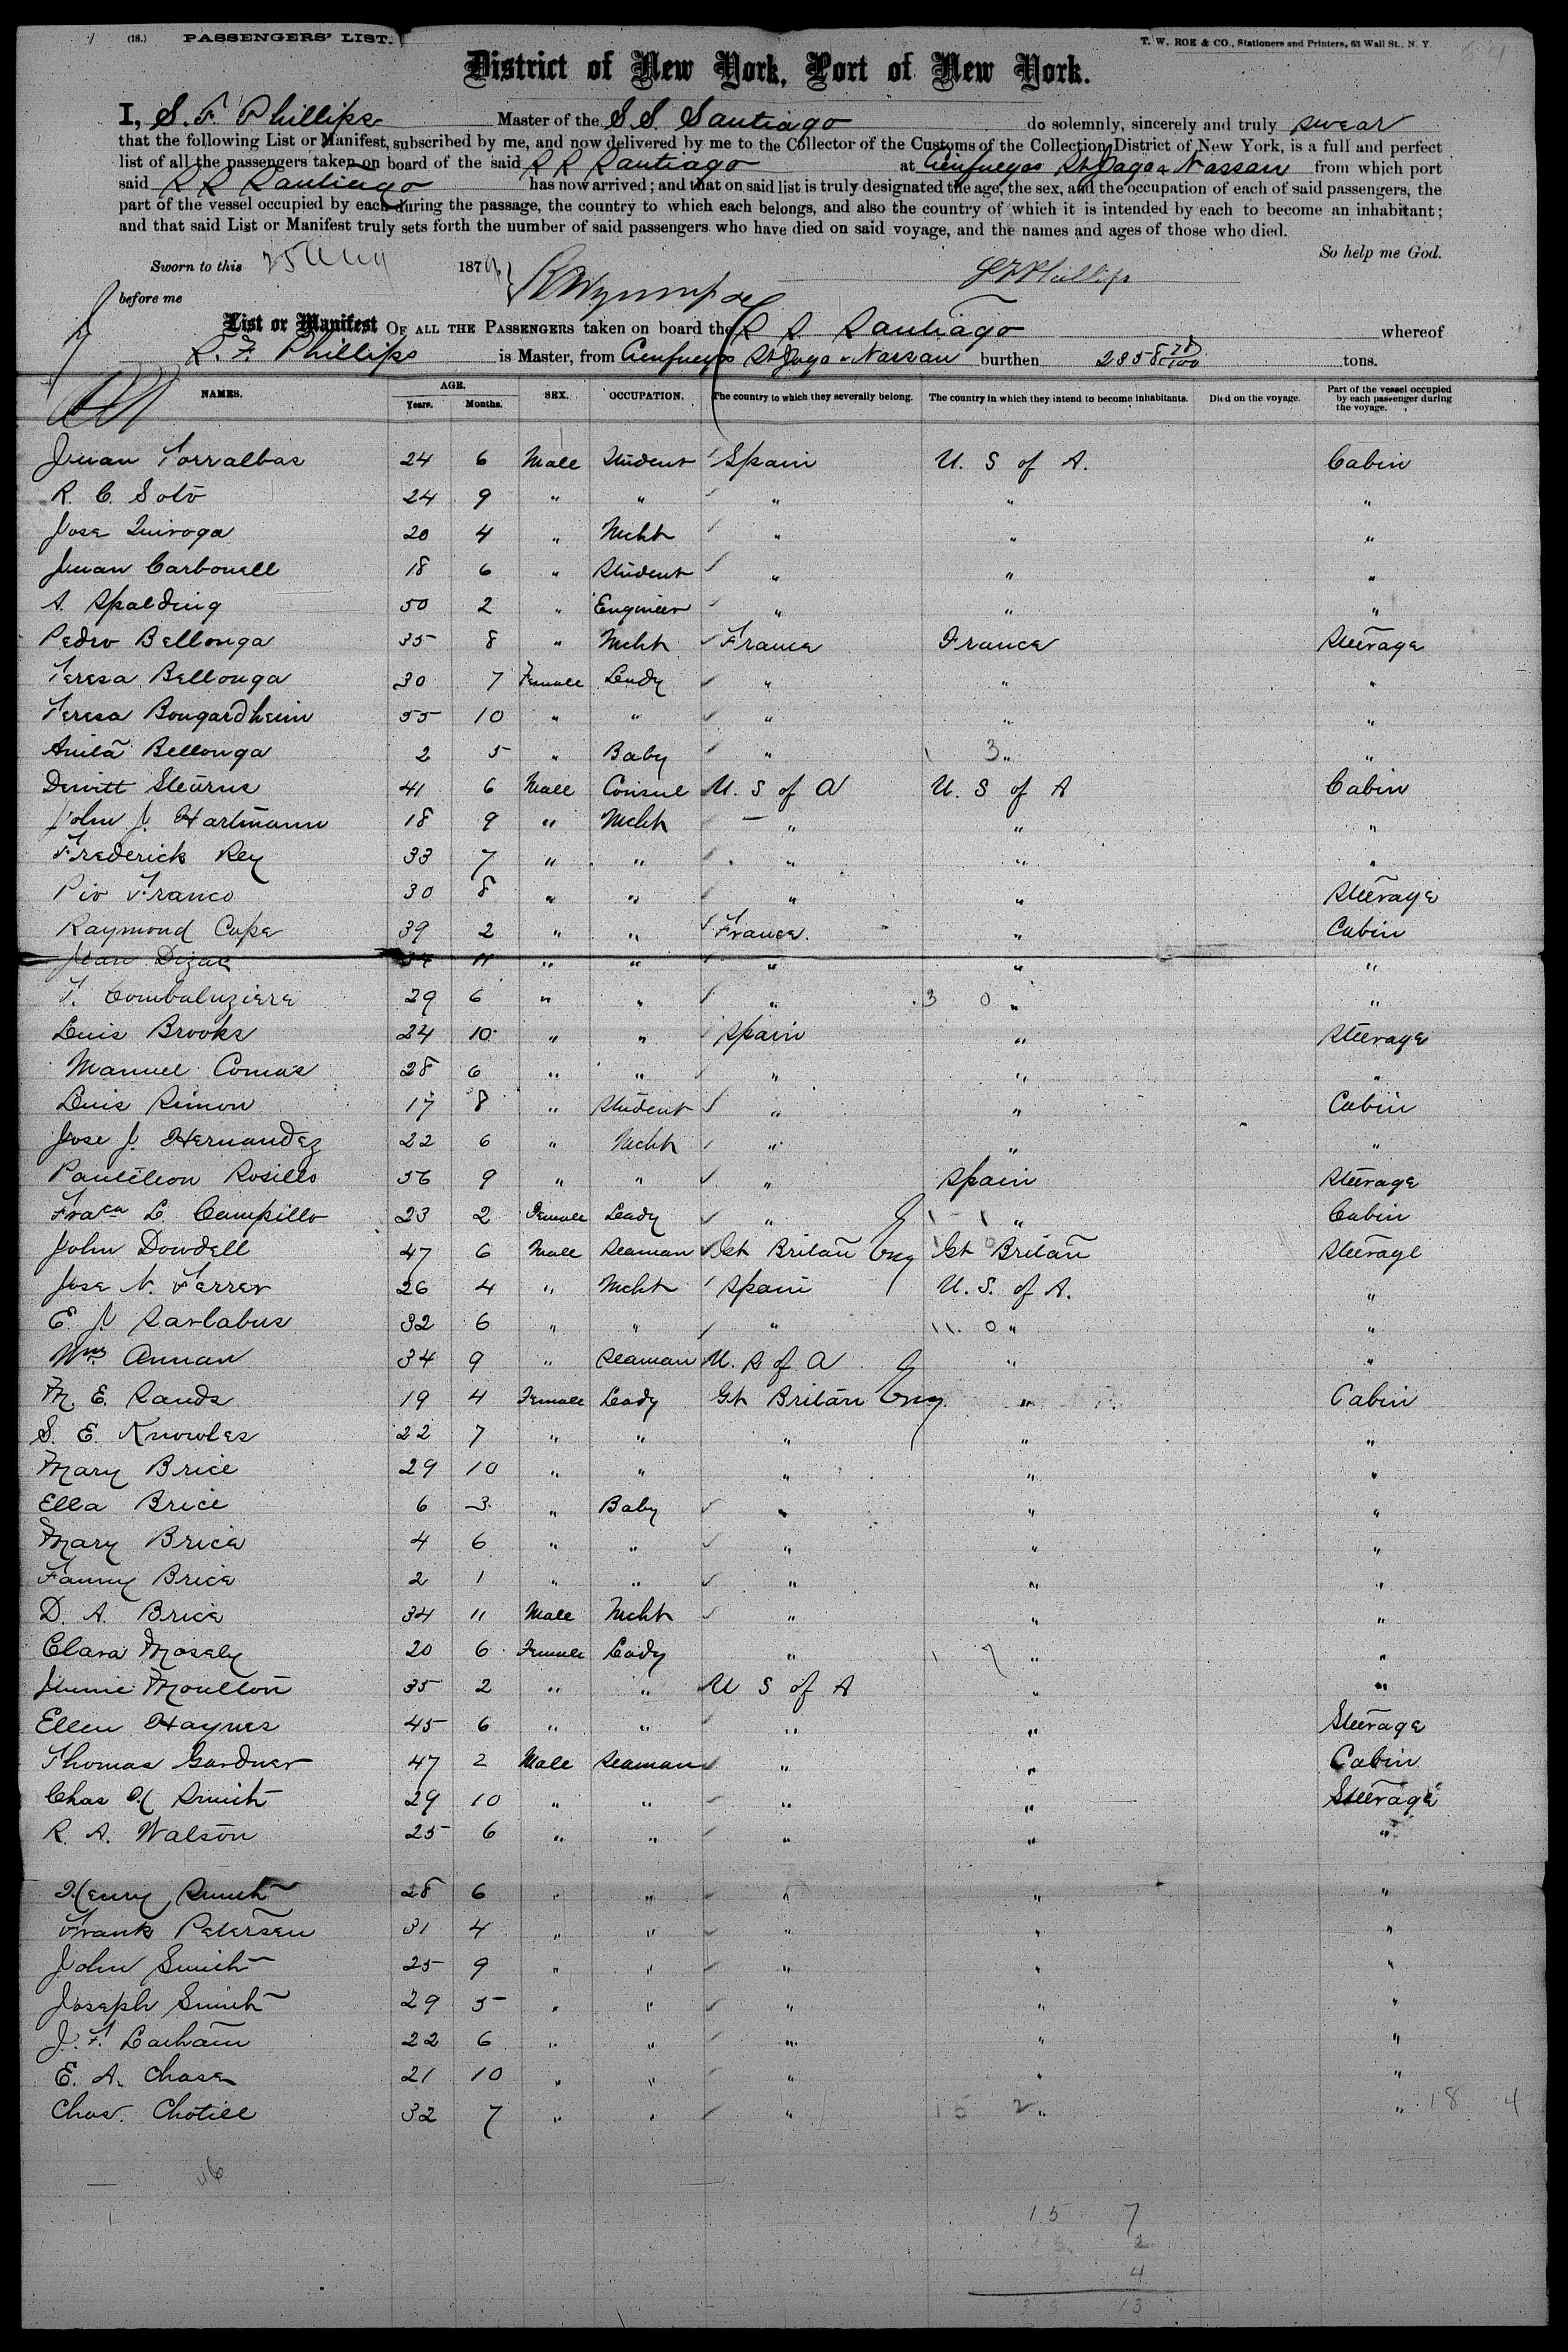 (18.) PASSENGERS' LIST. T. W. ROE & CO., Stationers and Printers, 63 Wall St., N. Y.
District of New York, Port of New York.
I, S. F. Phillips Master of the S.S. Santiago do solemnly, sincerely and truly swear
that the following List or Manifest, subscribed by me, and now delivered by me to the Collector of the Customs of the Collection District of New York, is a full and perfect
list of all the passengers taken on board of the said S S Santiago at Cienfuegos St Jago & Nassau from which port
said S S Santiago has now arrived; and that on said list is truly designated the age, the sex, and the occupation of each of said passengers, the
part of the vessel occupied by each during the passage, the country to which each belongs, and also the country of which it is intended by each to become an inhabitant;
and that said List or Manifest truly sets forth the number of said passengers who have died on said voyage, and the names and ages of those who died.
So help me God.
Sworn to this 25 Aug 1879 S F Phillips
before me
List or Manifest OF ALL THE PASSENGERS taken on board the S S Santiago whereof
S. F. Phillips is Master, from Cienfuegos St Jago & Nassau burthen 2358 78/100 tons.
NAMES. AGE. Years. Months. SEX. OCCUPATION. The country to which they severally belong. The country in which they intend to become inhabitants. Died on the voyage. Part of the vessel occupied by each passenger during the voyage.
Juan Torralbas 24 6 Male Student Spain U. S of A. Cabin
R. C. Soto 24 9 " " " " "
Jose Quiroga 20 4 " Mcht " " "
Juan Carbonell 18 6 " Student " " "
A. Spalding 50 2 " Engineer " " "
Pedro Bellonga 35 8 " Mcht France France Steerage
Teresa Bellonga 30 7 Female Lady " " "
Teresa Bongardheim 55 10 " " " " "
Anita Bellonga 2 5 " Baby " 3 " "
Dewitt Stearns 41 6 Male Consul U. S of A U. S of A Cabin
John J. Hartmann 18 9 " Mcht " " "
Frederick Rey 33 7 " " " " "
Pio Franco 30 8 " " " " Steerage
Raymond Cape 39 2 " " France " Cabin
Jean Dizac 34 11 " " " " "
T. Combaluziere 29 6 " " " 3 0 " "
Luis Brooks 24 10 " " Spain " Steerage
Manuel Comas 28 6 " " " " "
Luis Simon 17 8 " Student " " Cabin
Jose J. Hernandez 22 6 " Mcht " " "
Pantileon Rosillo 56 9 " " " Spain Steerage
Fraca L. Campillo 23 2 Female Lady " 1 - 1 " Cabin
John Dowdell 47 6 Male Seaman Gt Britan Eng Gt Britan Steerage
Jose N. Ferrer 26 4 " Mcht Spain U. S. of A. "
E. J. Sarlabus 32 6 " " " 11. 0 " "
Wm. Annan 34 9 " Seaman U. S of A " "
M. E. Sands 19 4 Female Lady Gt Britan Eng " Cabin
S. E. Knowles 22 7 " " " " "
Mary Brice 29 10 " " " " "
Ella Brice 6 3 " Baby " " "
Mary Brice 4 6 " " " " "
Fanny Brice 2 1 " " " " "
D. A. Brice 34 11 Male Mcht " " "
Clara Mosely 20 6 Female Lady " 1 7 " "
Jennie Moulton 35 2 " " U S of A " "
Ellen Haynes 45 6 " " " " Steerage
Thomas Gardner 47 2 Male Seaman " " Cabin
Chas H Smith 29 10 " " " " Steerage
R. A. Watson 25 6 " " " " "
Henry Smith 28 6 " " " " "
Frank Petersen 31 4 " " " " "
John Smith 25 9 " " " " "
Joseph Smith 29 5 " " " " "
J. F. Larham 22 6 " " " " "
E. A. Chase 21 10 " " " " "
Chas. Chotill 32 7 " " " 10 2 " " 18 4
46
15 7
2
4
13